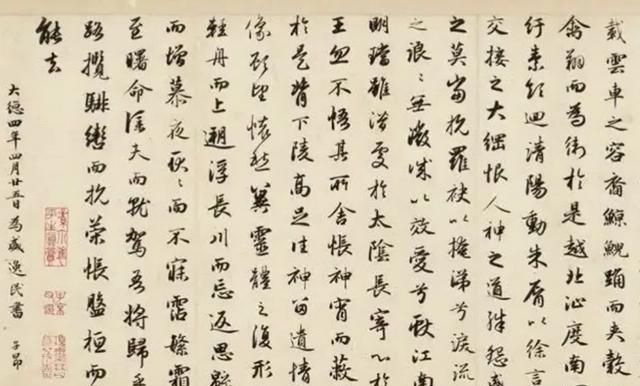 載雲車之容裔鯨鯢踴而夾轂
禽翔而為衛於是越北沚度南
紆素領迴清陽動朱脣以徐言
交接之大綱恨人神之道殊怨盛
之莫當抗羅袂以掩涕兮淚流
之浪〻無微誠以效愛兮獻江南
明璫雖潛處於太陰長寄心於
王忽不悟其所舍悵神宵而蔽
於是背下陵高足往神留遺情
像顧望懷愁冀靈體之復形
輕舟而上遡浮長川而忘返思
而增慕夜耿〻而不寐霑繁霜
至曙命僕夫而就駕吾將歸乎
路攬騑轡而抗策悵盤桓而
能去
大德四年四月廿五日為盛逸民書 子昂